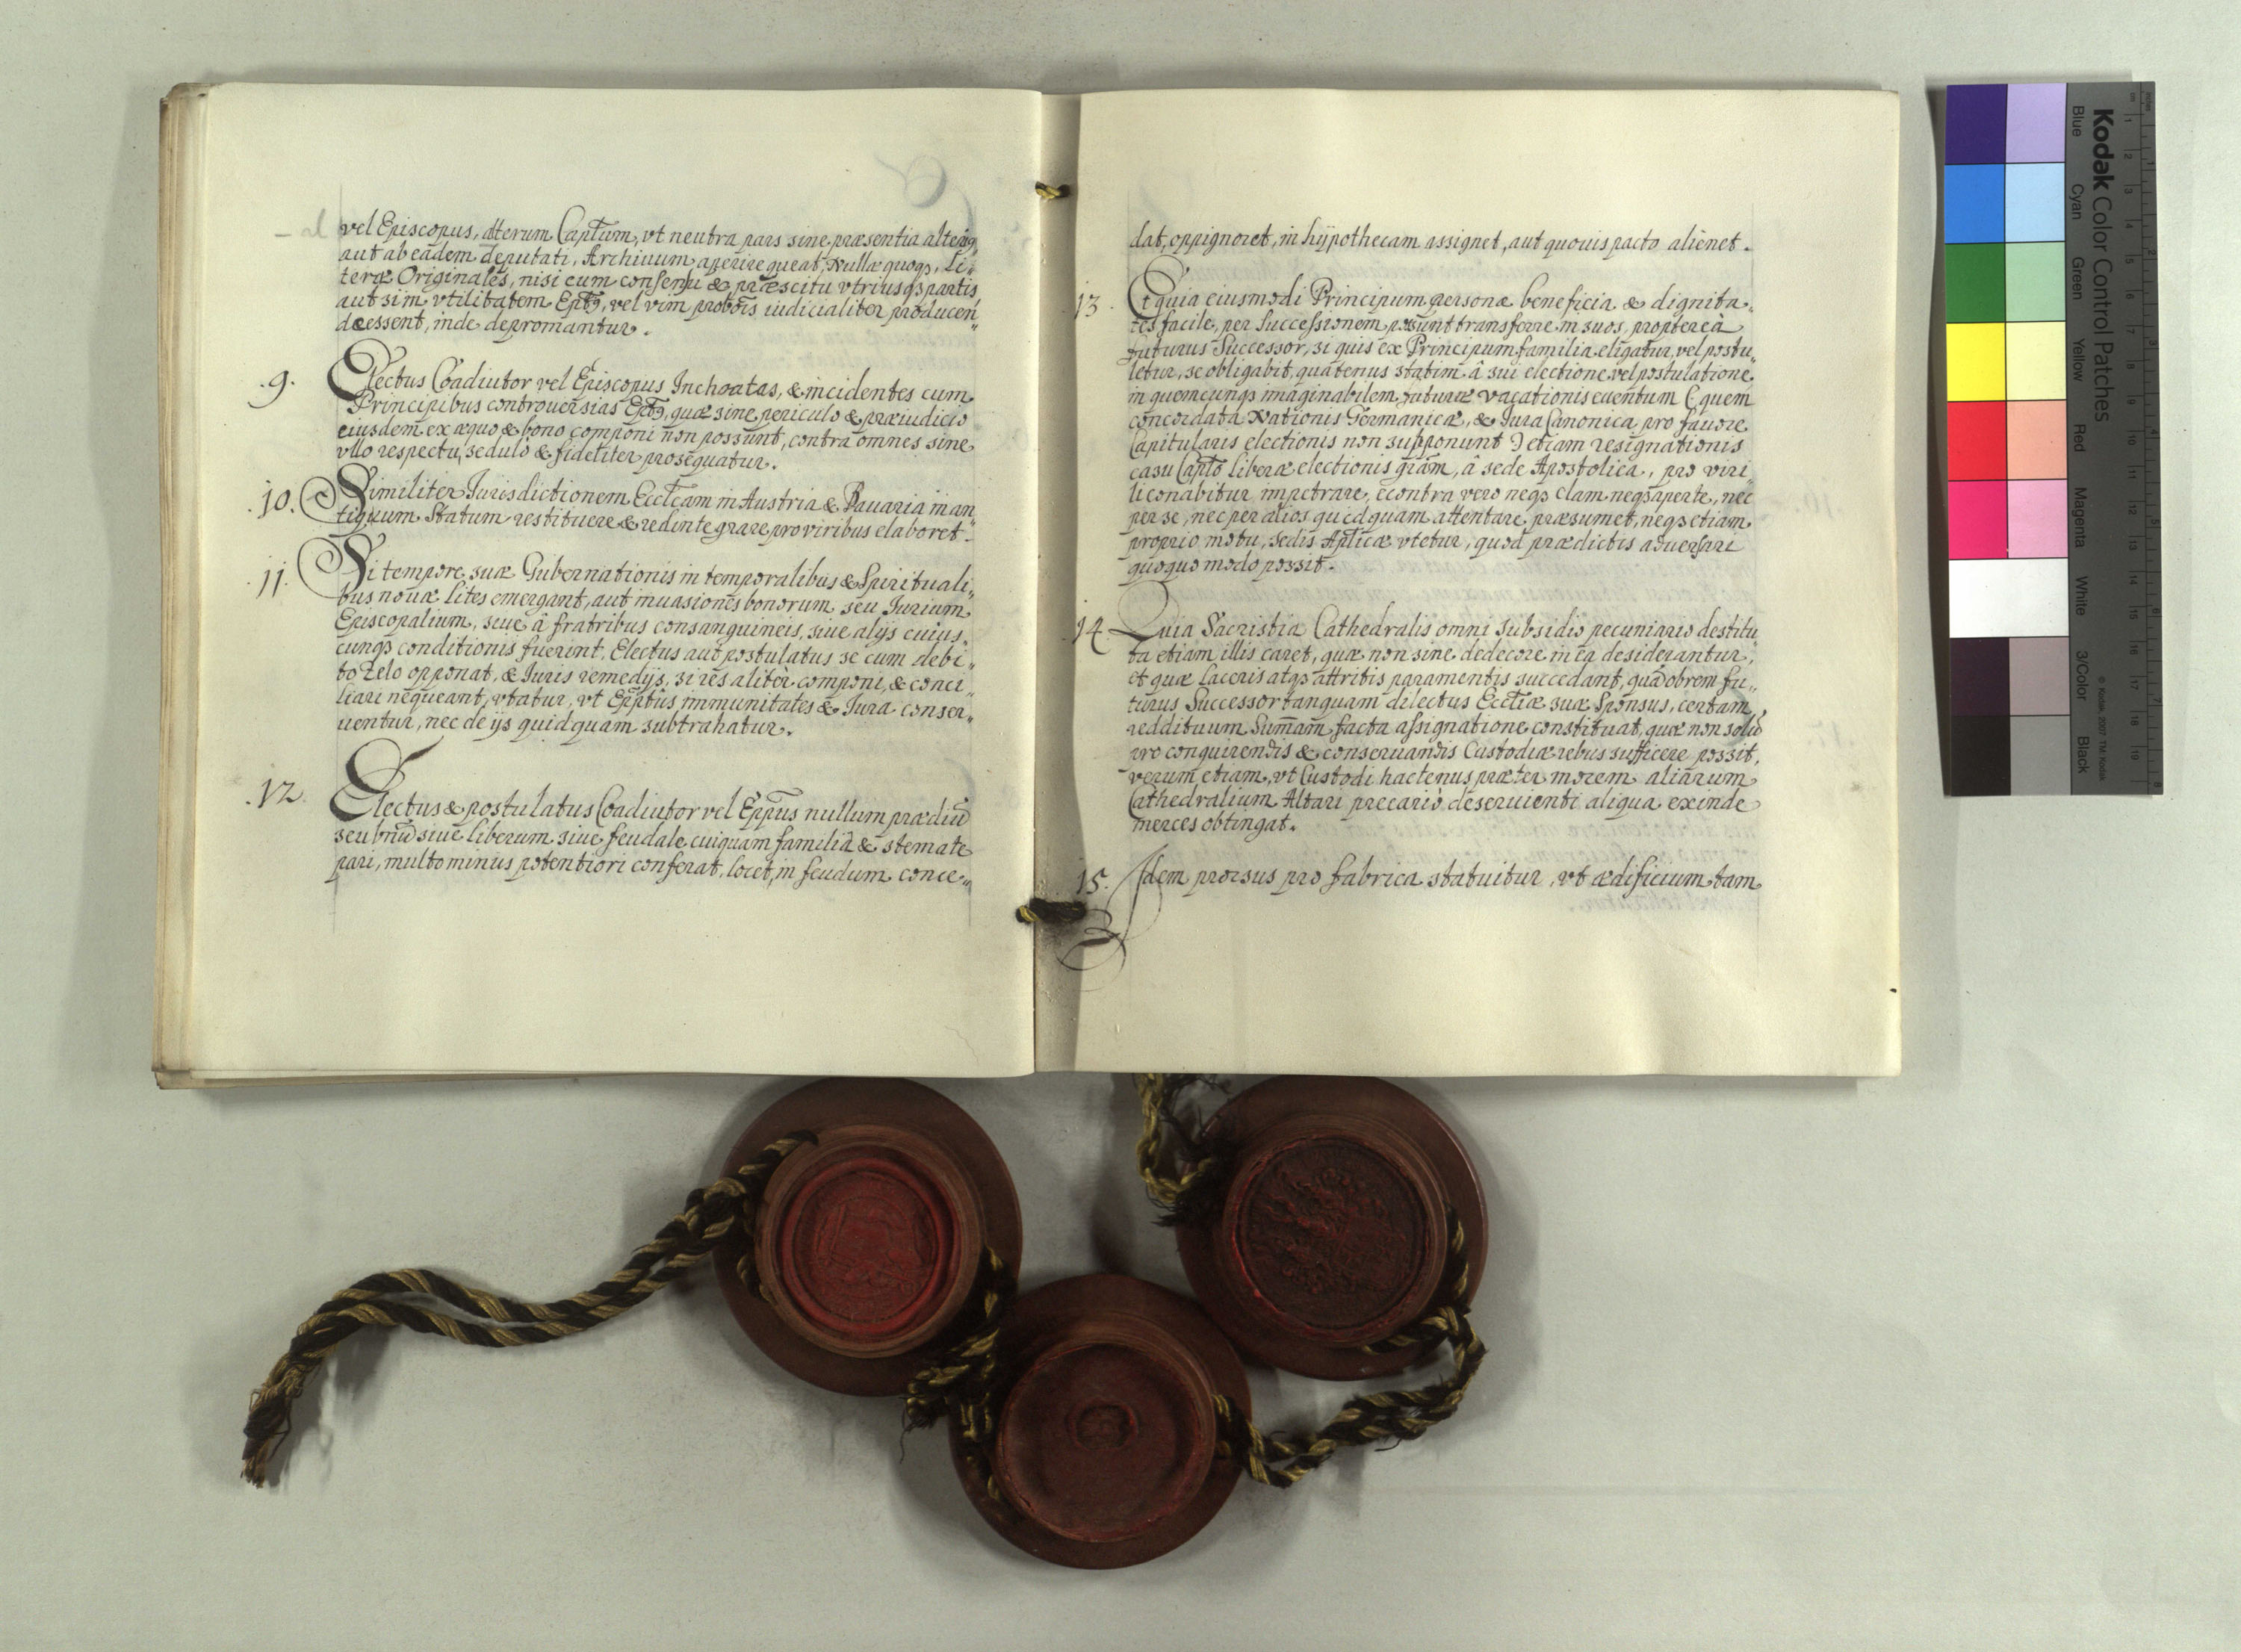 vel Episcopus, alterum Captum, vt neutra pars sine præsentia alterius
aut ab eadem deputati, Archiuum aperire queat, Nullæ quoqꝫ, Li„
teræ Originales, nisi cum consensu & præscitu vtriusqꝫ partis
aut si in vtilitatem Eptꝰ, vel vim probõis iudicialiter producen„
dæ essent, inde depromantur.
.9. Electus Coadiutor vel Episcopus Inchoatas, & incidentes cum
Principibus controuersias Eptꝰ, quæ sine periculo & præiudicio
eiusdem ex æquo & bono componi non possunt, contra omnes sine
vllo respectu, sedulò & fideliter prosequatur.
.10. Similiter Jurisdictionem Eccl̃cam in Austria & Bauaria in an„
tiquum Statum restituere & redintegrare pro viribus elaboret.
.11. Si tempore suæ Gubernationis in temporalibus & Spirituali„
bus nouæ lites emergant, aut inuasiones bonorum seu Jurium
Episcopalium, siue â fratribus consanguineis, siue alijs cuius„
cunqꝫ conditionis fuerint, Electus aut postulatus se cum debi„
to Zelo opponat, & Juris remedijs, si res aliter componi, & conci„
liari nequeant, vtatur, vt Epptûs immunitates & Jura conser„
uentur, nec de ijs quidquam subtrahatur.
.12. Electus & postulatus Coadiutor vel Epp̃us nullum prædiũ
seu bnũ siue liberum siue feudale cuiquam familiâ & stemate
pari, multo minus potentiori conferat, locet, in feudum conce„
dat, oppignoret, in hÿpothecam assignet, aut quouis pacto alienet.
13. Et quia eiusmodi Principum personæ beneficia & dignita„
tes facile, per Successionem possunt transferre in suos, propterea
futurus Successor, si quis ex Principum familia eligatur, vel postu„
letur, se obligabit, quatenus statim â sui electione vel postulatione
in quemcunqꝫ imaginabilem futuræ vacationis euentum (quem
concordata Nationis Germanicæ, & Jura Canonica pro fauore
Capitularis electionis non supponunt) etiam resignationis
casu Capto liberæ electionis grãm, â sede Apostolica, pro viri„
li conabitur impetrare, è contra vero neqꝫ clam neqꝫ aperte, nec
per se, nec per alios quidquam attentare præsumet, neqꝫ etiam
proprio motu, sedis Apl̃icæ vtetur, quod prædictis aduersari
quoquo modo possit.
14. Quia Sacristia Cathedralis omni subsidio pecuniario destitu„
ta etiam illis caret, quæ non sine dedecore in ea desiderantur,
et quæ laceris atqꝫ attritis paramentis succedant, quãobrem fu„
turus Successor tanquam dilectus Eccl̃iæ suæ Sponsus, certam
reddituum Sum̃am facta assignatione constituat, quæ non solũ
pro conquirendis & conseruandis Custodiæ rebus sufficere possit,
verum etiam, vt Custodi hactenus præter morem aliarum
Cathedralium Altari precariò deseruienti aliqua exinde
merces obtingat.
15. Idem prorsus pro fabrica statuitur, vt ædificium tam
Kodak Color Control Patches
Blue
Cyan
Green
Yellow
Red
Magenta
White
3/Color
Black
© Kodak, 2007 TM: Kodak